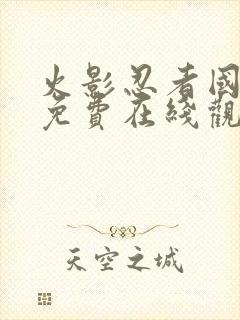 火影忍者国
免費在綫觀
天空之城